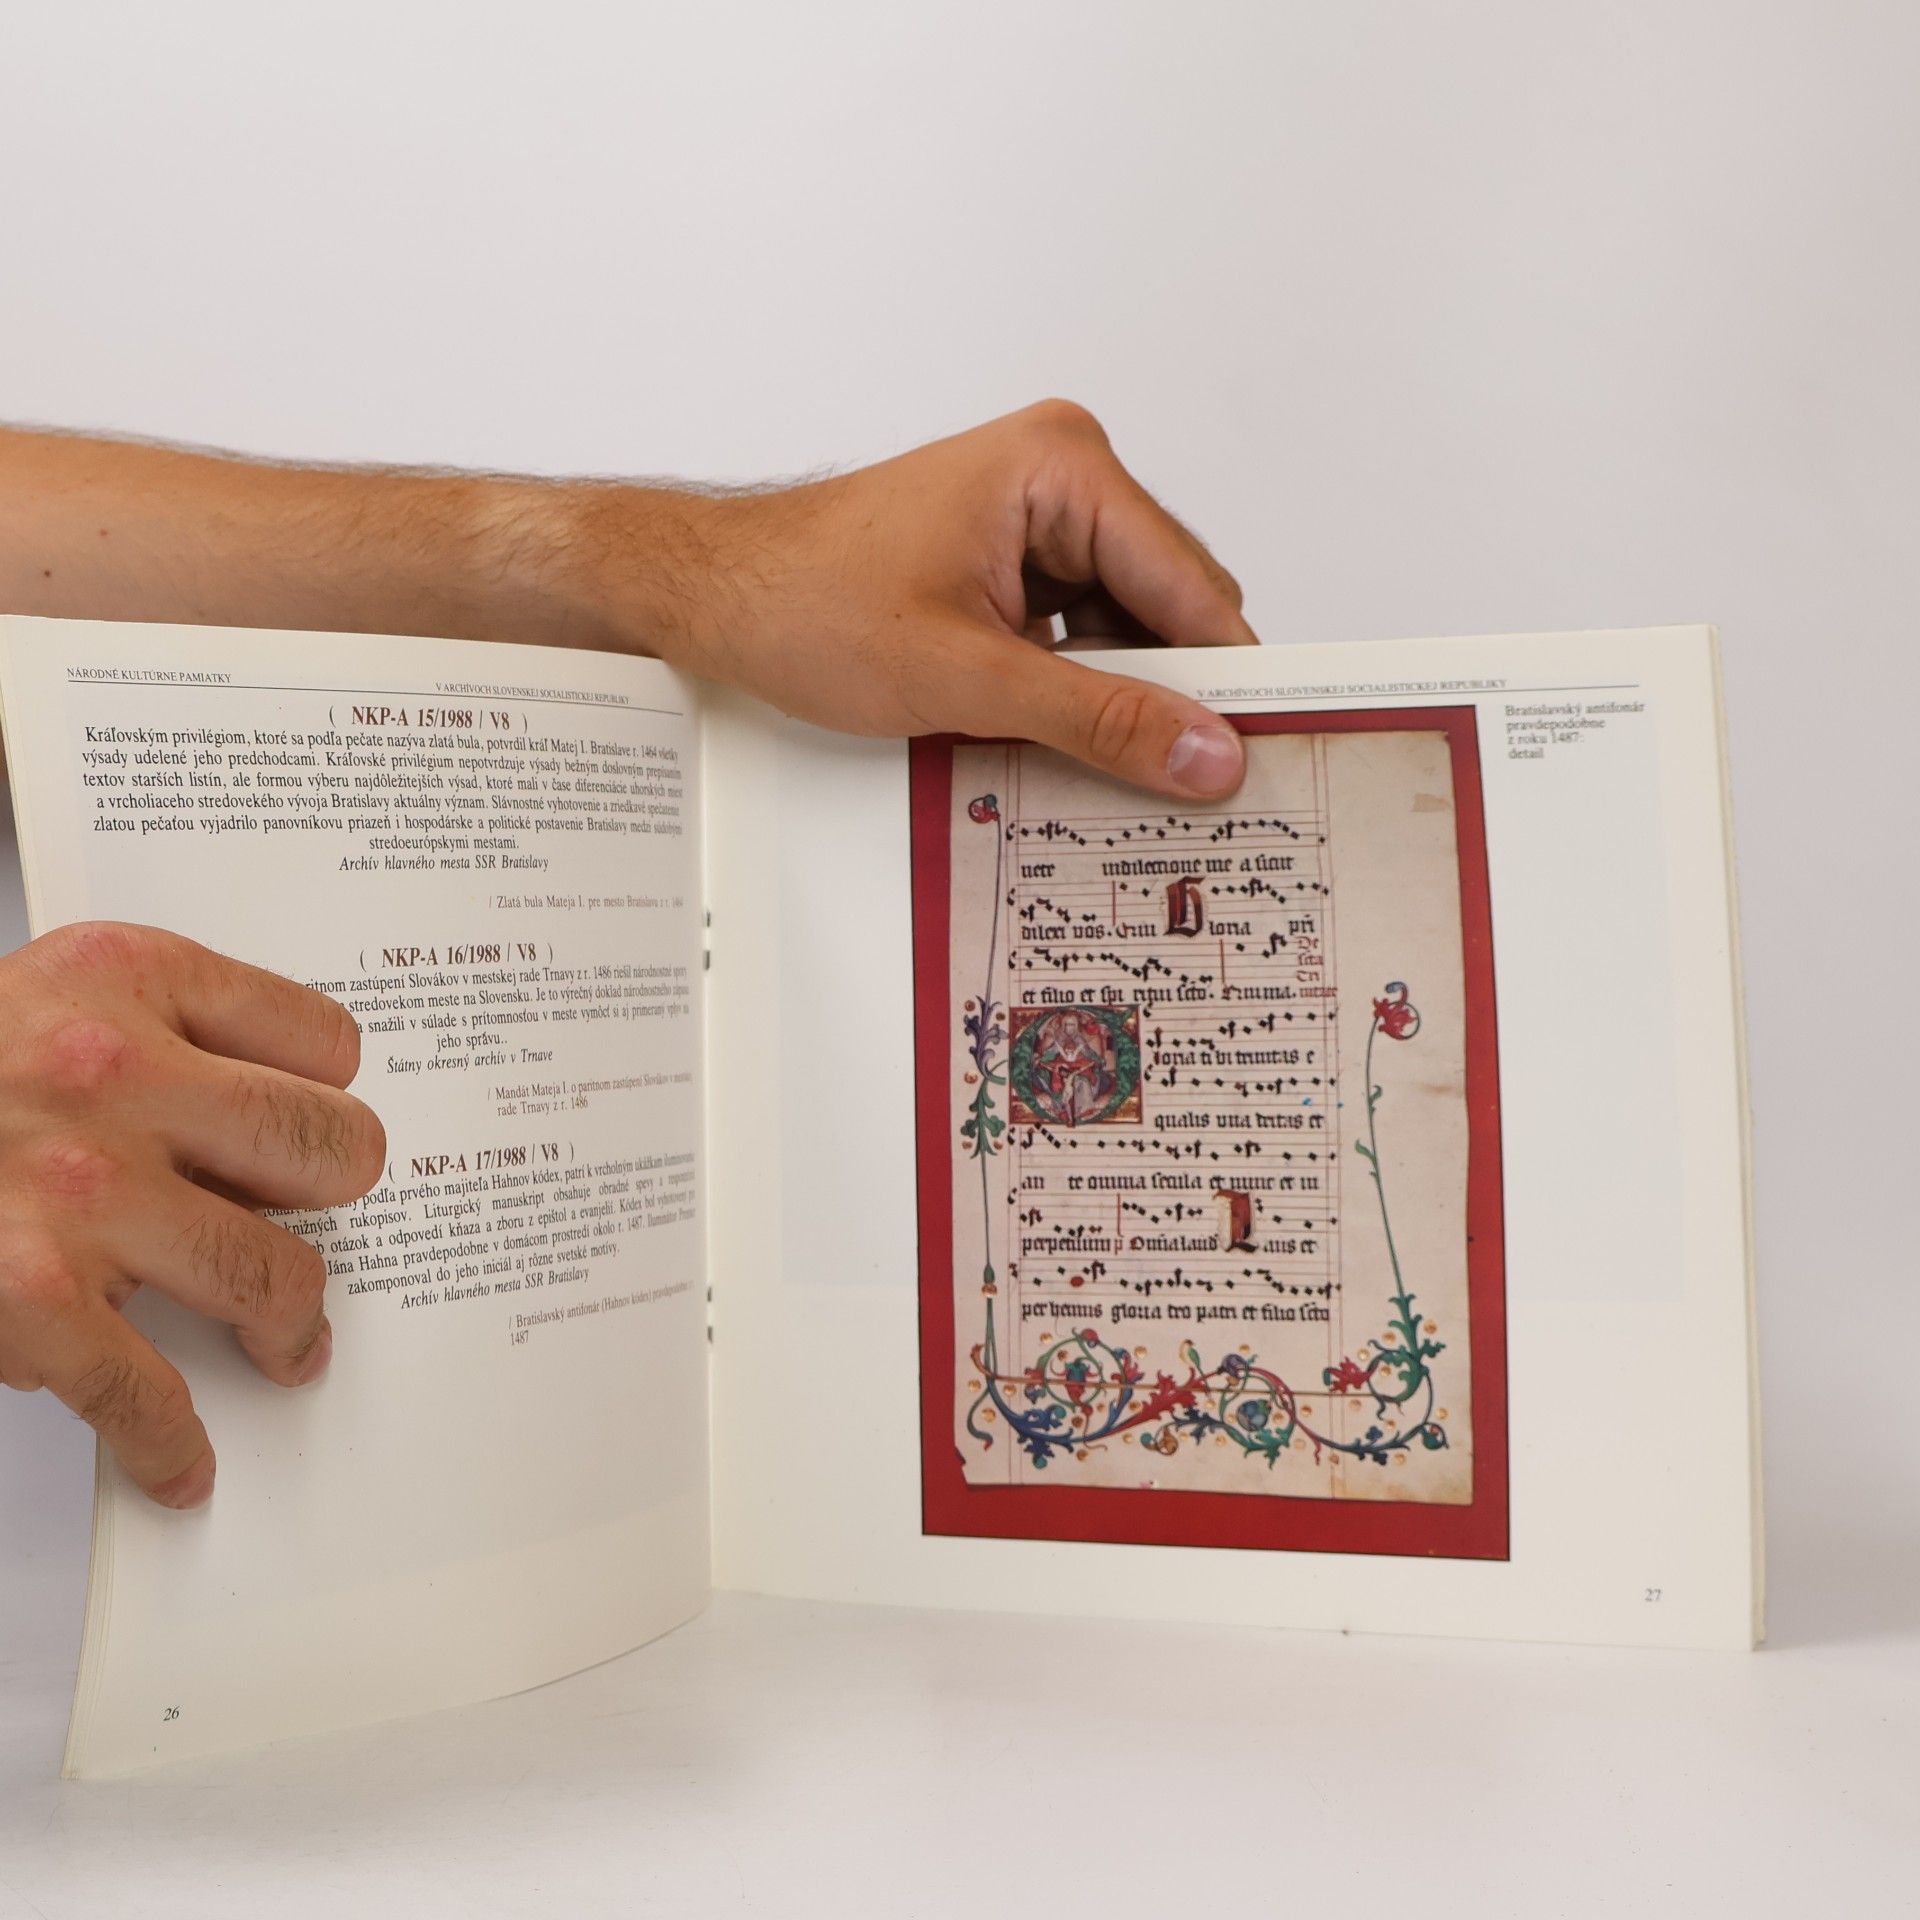 NÁRODNÉ KULTÚRNE PAMIATKY
V ARCHÍVOCH SLOVENSKEJ SOCIALISTICKEJ REPUBLIKY
( NKP-A 15/1988 / V8 )
Kráľovským privilégiom, ktoré sa podľa pečate nazýva zlatá bula, potvrdil kráľ Matej I. Bratislave r. 1464 všetky
výsady udelené jeho predchodcami. Kráľovské privilégium nepotvrdzuje výsady bežným doslovným prepísaním
textov starších listín, ale formou výberu najdôležitejších výsad, ktoré mali v čase diferenciácie uhorských miest
a vrcholiaceho stredovekého vývoja Bratislavy aktuálny význam. Slávnostné vyhotovenie a zriedkavé spečatenie
zlatou pečaťou vyjadrilo panovníkovu priazeň i hospodárske a politické postavenie Bratislavy medzi súdobými
stredoeurópskymi mestami.
Archív hlavného mesta SSR Bratislavy
/ Zlatá bula Mateja I. pre mesto Bratislavu z r. 1464
( NKP-A 16/1988 / V8 )
zastúpení Slovákov v mestskej rade Trnavy z r. 1486 riešil národnostné spory
stredovekom meste na Slovensku. Je to výrečný doklad národnostného zápasu
a snažili v súlade s prítomnosťou v meste vymôcť si aj primeraný vplyv na
jeho správu..
Štátny okresný archív v Trnave
/ Mandát Mateja I. o paritnom zastúpení Slovákov v mestskej
rade Trnavy z r. 1486
( NKP-A 17/1988 / V8 )
podľa prvého majiteľa Hahnov kódex, patrí k vrcholným ukážkam iluminovaných
knižných rukopisov. Liturgický manuskript obsahuje obradné spevy a responzóriá
otázok a odpovedí kňaza a zboru z epištol a evanjelií. Kódex bol vyhotovený pre
Jána Hahna pravdepodobne v domácom prostredí okolo r. 1487. Iluminátor
zakomponoval do jeho iniciál aj rôzne svetské motívy.
Archív hlavného mesta SSR Bratislavy
/ Bratislavský antifonár (Hahnov kódex) pravdepodobne z r.
1487
26
V ARCHÍVOCH SLOVENSKEJ SOCIALISTICKEJ REPUBLIKY
Bratislavský antifonár
pravdepodobne
z roku 1487:
detail
me a sicut
dilexi vos. Gloria pri
et filio et spi ritui scto.
loria ti bi trinitas e
qualis una deitas et
an te omnia secula et nunc et in
perpetuum Laus et
per hennis gloria deo patri et filio scto
27